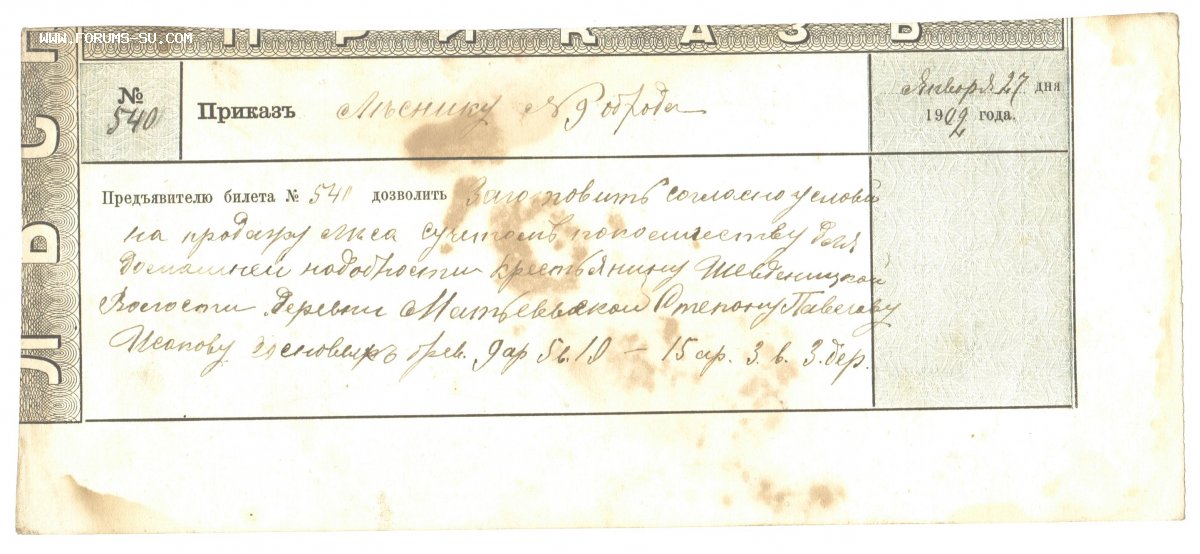 WWW.FORUMS-SU.COM
ПРИКАЗЪ
ЛѢСН
№
540
Приказъ Лѣснику № 9 обхода
Января 27 дня
1902 года.
Предъявителю билета № 540 дозволить Заготовить согласно условій
на продажу лѣса съ учетомъ по количеству для
домашней надобности крестьянину Шевденицкой
Волости деревни Матвеевской Степану Павлову
сосновыхъ брев. 9 ар 5 в. 10 — 15 ар. 3. в. 3. бер.